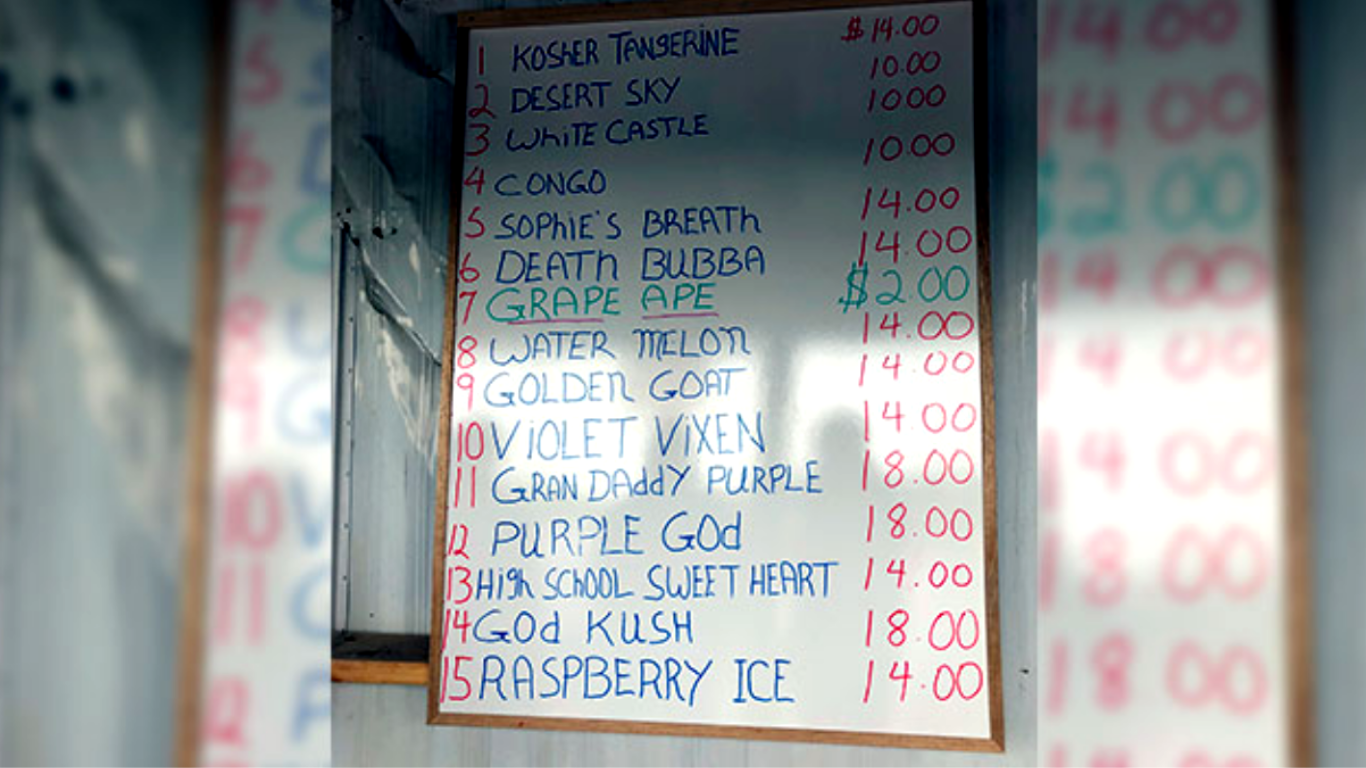 1 KOSHER TANGERINE $14.00
2 DESERT SKY 10.00
3 WhiTE CASTLE 1000
4 CONGO 10.00
5 SOPhiE'S BREATh 14.00
6 DEATh BUBBA 14.00
7 GRAPE APE $2.00
8 WATER MELON 14.00
9 GOLDEN GOAT 14.00
10 ViOLET ViXEN 14.00
11 GRAN DAddY PURPLE 18.00
12 PURPLE GOd 18.00
13 High SChOOL SWEET HEART 14.00
14 GOd KUSH 18.00
15 RASPBERRY ICE 14.00